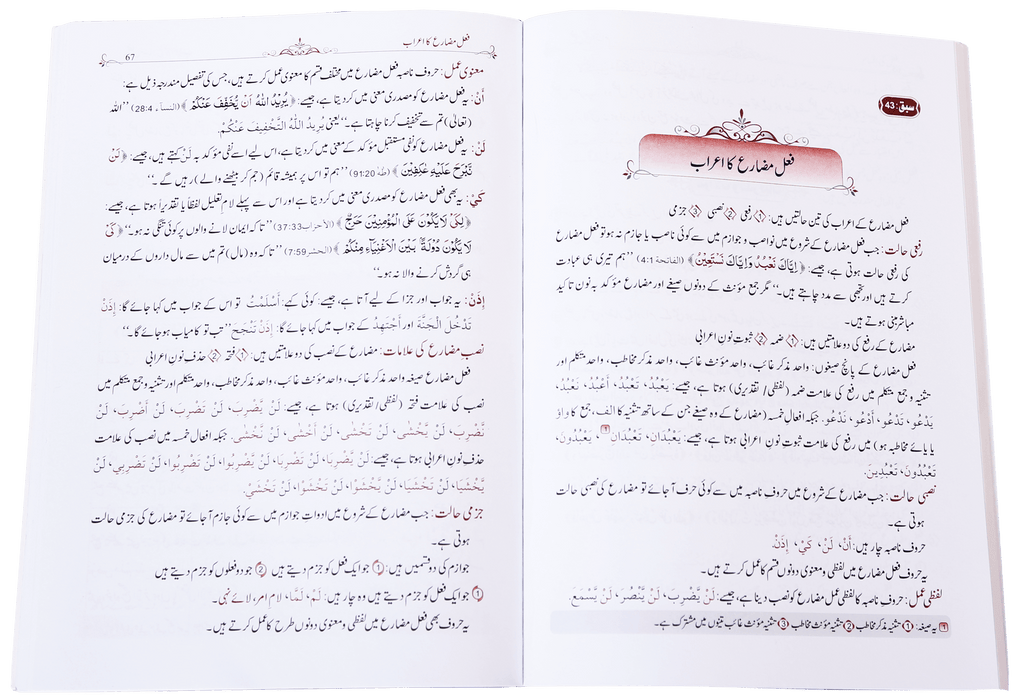 سبق: 43
فعل مضارع کا اعراب
فعل مضارع کے اعراب کی تین حالتیں ہیں: ① رفعی ② نصبی ③ جزمی
رفعی حالت: جب فعل مضارع کے شروع میں نواصب و جوازم میں سے کوئی ناصب یا جازم نہ ہو تو فعل مضارع
کی رفعی حالت ہوتی ہے، جیسے: ﴿إِيَّاكَ نَعْبُدُ وَإِيَّاكَ نَسْتَعِينُ﴾ (الفاتحة 4:1) ’’ہم تیری ہی عبادت
کرتے ہیں اور تجھی سے مدد چاہتے ہیں۔‘‘ مگر جمع مؤنث کے دونوں صیغے اور مضارع مؤکد بہ نون تاکید
مباشر مبنی ہوتے ہیں۔
مضارع کے رفع کی دو علامتیں ہیں: ① ضمہ ② ثبوت نون اعرابی
فعل مضارع کے پانچ صیغوں: واحد مذکر غائب، واحد مؤنث غائب، واحد مذکر مخاطب، واحد متکلم اور
تثنیہ و جمع متکلم میں رفع کی علامت ضمہ (لفظی/ تقدیری) ہوتا ہے، جیسے: يَعْبُدُ، تَعْبُدُ، أَعْبُدُ، نَعْبُدُ،
يَدْعُو، تَدْعُو، أَدْعُو، نَدْعُو. جبکہ افعال خمسہ (مضارع کے وہ صیغے جن کے ساتھ تثنیہ کا الف، جمع کا واؤ
یا یائے مخاطبہ ہو) میں رفع کی علامت ثبوت نون اعرابی ہوتا ہے، جیسے: يَعْبُدَانِ، تَعْبُدَانِ، يَعْبُدُونَ،
تَعْبُدُونَ، تَعْبُدِينَ.
نصبی حالت: جب مضارع کے شروع میں حروف ناصبہ میں سے کوئی حرف آجائے تو مضارع کی نصبی حالت
ہوتی ہے۔
حروف ناصبہ چار ہیں: أَنْ، لَنْ، كَيْ، إِذَنْ.
یہ حروف فعل مضارع میں لفظی و معنوی دونوں قسم کا عمل کرتے ہیں۔
لفظی عمل: حروف ناصبہ کا لفظی عمل مضارع کو نصب دینا ہے، جیسے: لَنْ يَّضْرِبَ، لَنْ يَّنْصُرَ، لَنْ يَّسْمَعَ.
یہ صیغہ: ① تثنیہ مذکر مخاطب ② تثنیہ مؤنث مخاطب ③ تثنیہ مؤنث غائب تینوں میں مشترک ہے۔
فعل مضارع کا اعراب
67
معنوی عمل: حروف ناصبہ فعل مضارع میں مختلف قسم کا معنوی عمل کرتے ہیں، جس کی تفصیل مندرجہ ذیل ہے:
أَنْ: یہ فعل مضارع کو مصدری معنی میں کر دیتا ہے، جیسے: ﴿يُرِيْدُ اللّٰهُ اَنْ يُّخَفِّفَ عَنْكُمْ﴾ (النساء 28:4) ’’اللہ
(تعالیٰ) تم سے تخفیف کرنا چاہتا ہے۔‘‘ یعنی يُرِيدُ اللّٰهُ التَّخْفِيفَ عَنْكُمْ.
لَنْ: یہ فعل مضارع کو نفی مستقبل مؤکد کے معنی میں کر دیتا ہے، اس لیے اسے نفی مؤکد بہ لَنْ کہتے ہیں، جیسے: ﴿لَنْ
نَّبْرَحَ عَلَيْهِ عٰكِفِيْنَ﴾ (طٰهٰ 91:20) ’’ہم تو اس پر ہمیشہ قائم (جم کر بیٹھنے والے) رہیں گے۔‘‘
كَيْ: یہ بھی فعل مضارع کو مصدری معنی میں کر دیتا ہے اور اس سے پہلے لام تعلیل لفظاً یا تقدیراً ہوتا ہے، جیسے:
﴿لِكَيْ لَا يَكُوْنَ عَلَى الْمُؤْمِنِيْنَ حَرَجٌ﴾ (الأحزاب 37:33) ’’تاکہ ایمان لانے والوں پر کوئی تنگی نہ ہو۔‘‘ ﴿كَيْ
لَا يَكُوْنَ دُوْلَةً بَيْنَ الْاَغْنِيَآءِ مِنْكُمْ﴾ (الحشر 7:59) ’’تاکہ وہ (مال) تم میں سے مال داروں کے درمیان
ہی گردش کرنے والا نہ ہو۔‘‘
إِذَنْ: یہ جواب اور جزا کے لیے آتا ہے، جیسے: کوئی کہے: أَسْلَمْتُ تو اس کے جواب میں کہا جائے گا: إِذَنْ
تَدْخُلَ الْجَنَّةَ اور أَجْتَهِدُ کے جواب میں کہا جائے گا: إِذَنْ تَنْجَحَ ’’تب تو کامیاب ہو جائے گا۔‘‘
نصب مضارع کی علامات: مضارع کے نصب کی دو علامتیں ہیں: ① فتحہ ② حذف نون اعرابی
فعل مضارع صیغہ واحد مذکر غائب، واحد مؤنث غائب، واحد مذکر مخاطب، واحد متکلم اور تثنیہ و جمع متکلم میں
نصب کی علامت فتحہ (لفظی/ تقدیری) ہوتا ہے، جیسے: لَنْ يَّضْرِبَ، لَنْ تَضْرِبَ، لَنْ أَضْرِبَ، لَنْ
نَّضْرِبَ، لَنْ يَّخْشٰى، لَنْ تَخْشٰى، لَنْ أَخْشٰى، لَنْ نَّخْشٰى. جبکہ افعال خمسہ میں نصب کی علامت
حذف نون اعرابی ہوتا ہے، جیسے: لَنْ يَّضْرِبَا، لَنْ تَضْرِبَا، لَنْ يَّضْرِبُوا، لَنْ تَضْرِبُوا، لَنْ تَضْرِبِي، لَنْ
يَّخْشَيَا، لَنْ تَخْشَيَا، لَنْ يَّخْشَوْا، لَنْ تَخْشَوْا، لَنْ تَخْشَيْ.
جزمی حالت: جب مضارع کے شروع میں ادوات جوازم میں سے کوئی جازم آجائے تو مضارع کی جزمی حالت
ہوتی ہے۔
جوازم کی دو قسمیں ہیں: ① جو ایک فعل کو جزم دیتے ہیں ② جو دو فعلوں کو جزم دیتے ہیں
① جو ایک فعل کو جزم دیتے ہیں وہ چار ہیں: لَمْ، لَمَّا، لام امر، لائے نہی۔
یہ حروف بھی فعل مضارع میں لفظی و معنوی دونوں طرح کا عمل کرتے ہیں۔